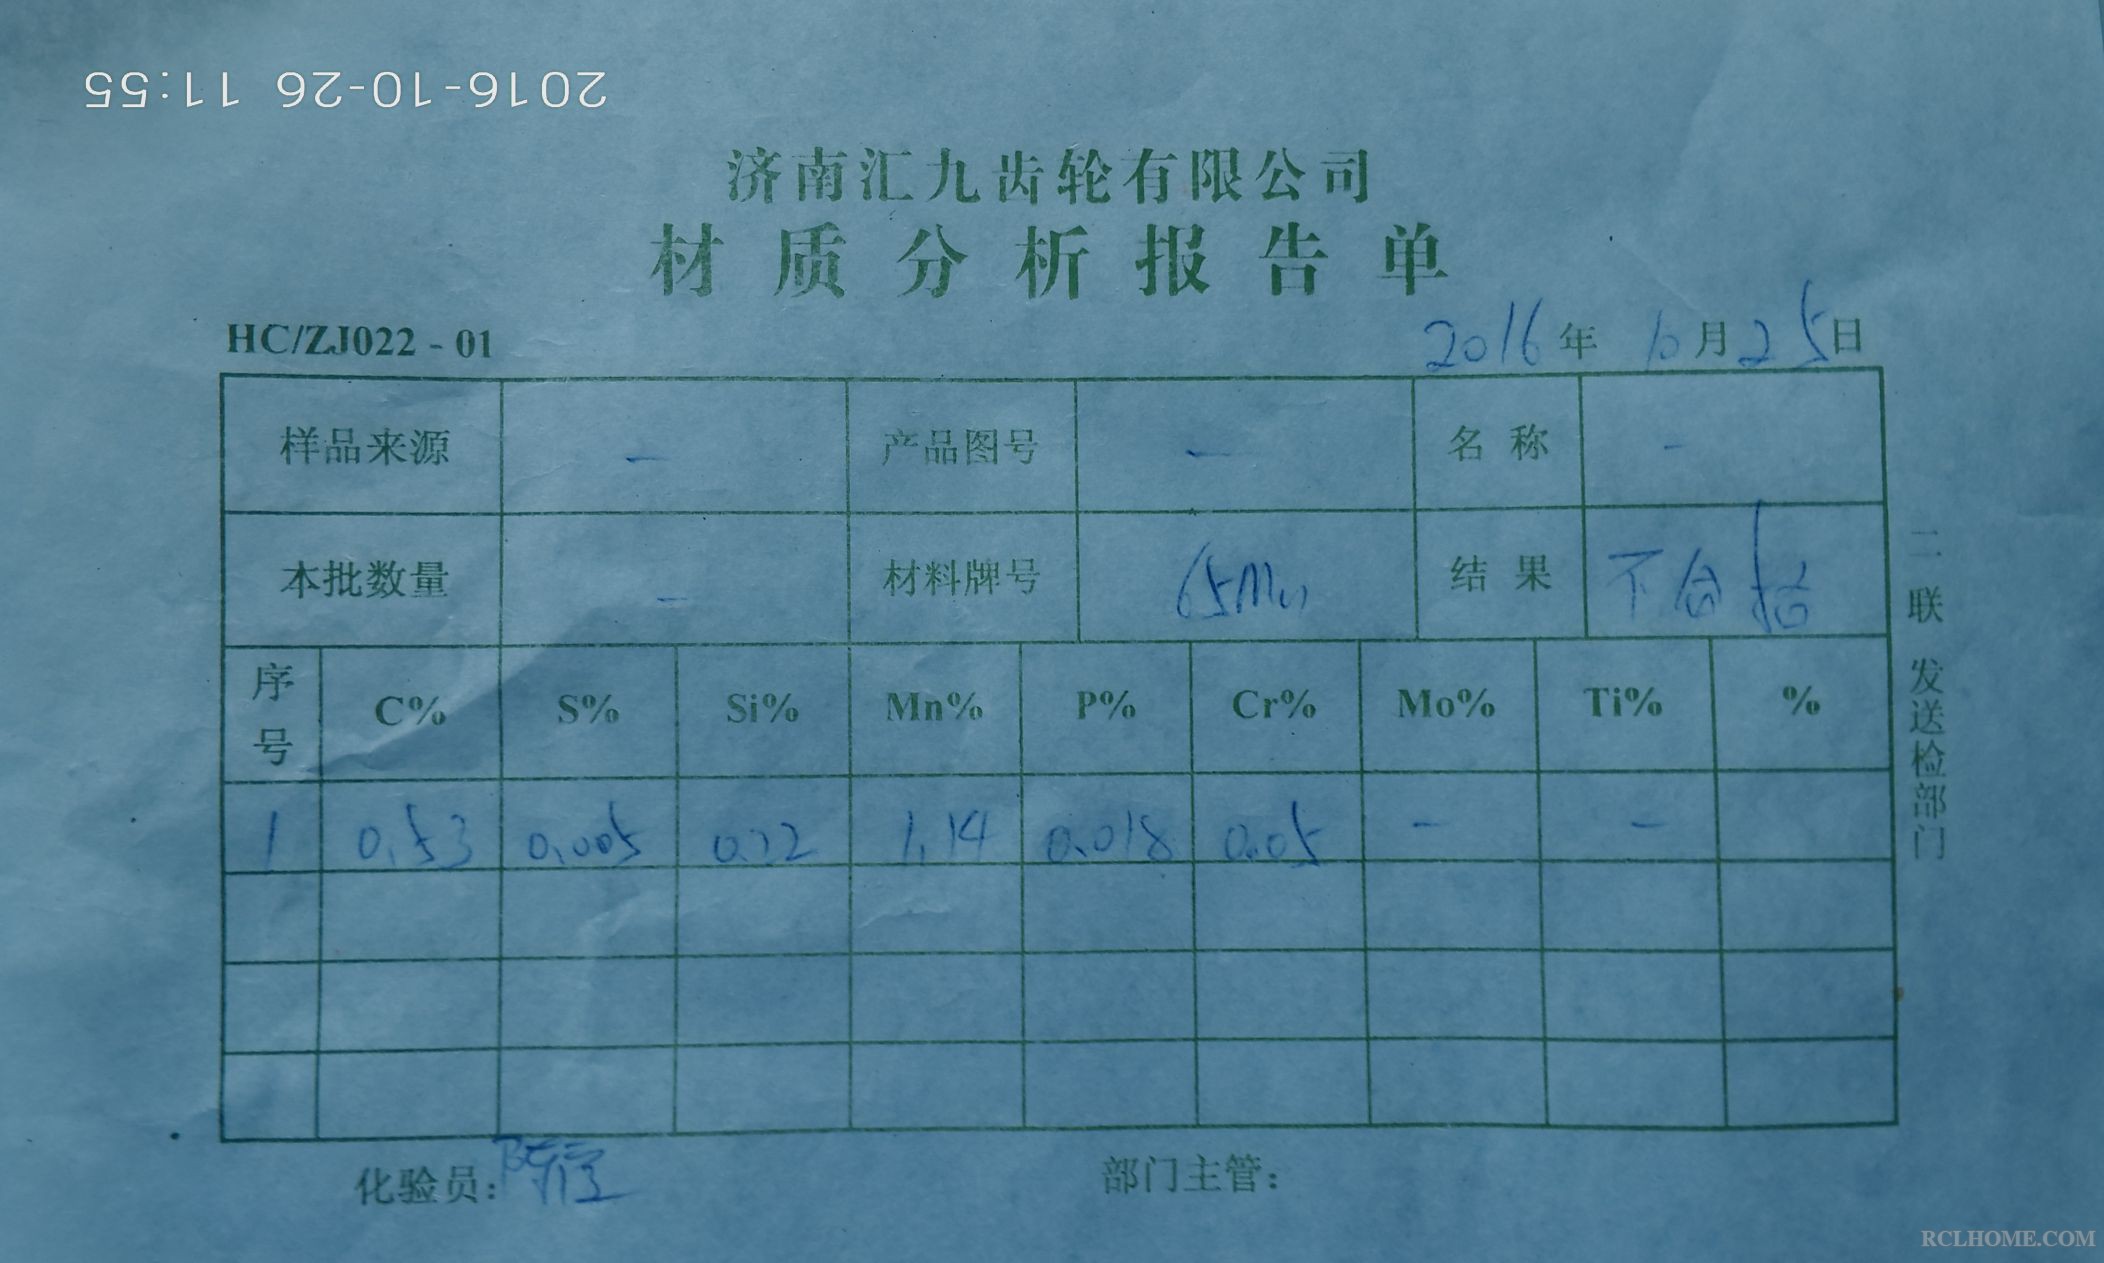 2016-10-26 11:55
济南汇九齿轮有限公司
材质分析报告单
HC/ZJ022 - 01
2016年 10月25日
样品来源 — 产品图号 — 名称 —
本批数量 — 材料牌号 65Mn 结果 不合格
序号 C% S% Si% Mn% P% Cr% Mo% Ti% %
1 0.53 0.005 0.22 1.14 0.018 0.05 — —
二联 发送检部门
化验员:
部门主管:
RCLHOME.COM